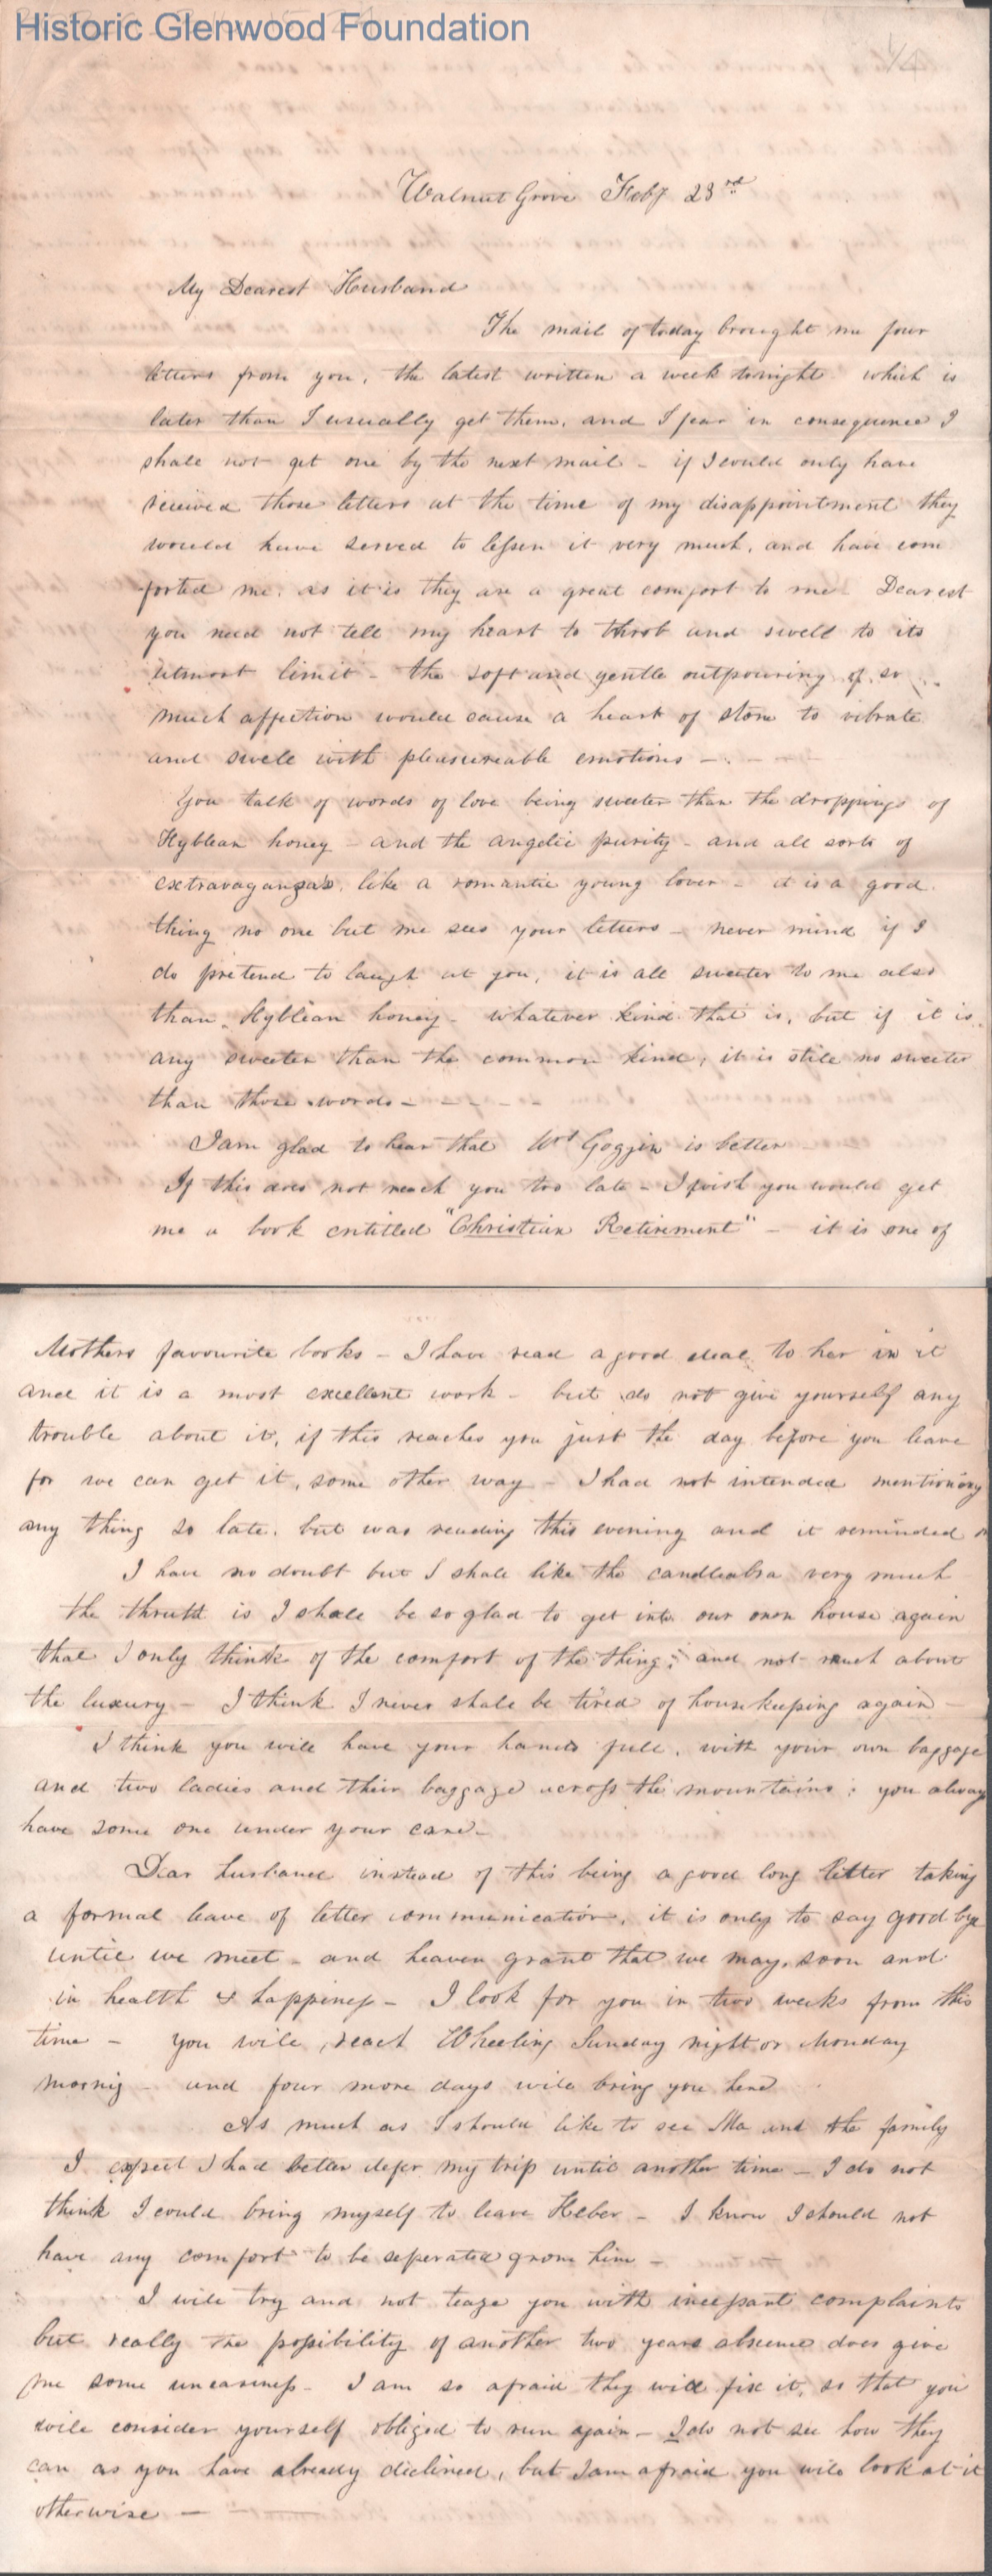 Historic Glenwood Foundation
Walnut Grove Feby 23rd
My Dearest Husband
The mail of today brought me four
letters from you, the latest written a week tonight which is
later than I usually get them, and I fear in consequence I
shall not get one by the next mail - if I could only have
received those letters at the time of my disappointment they
would have served to lessen it very much, and have com
forted me. as it is they are a great comfort to me - Dearest
you need not tell my heart to throb and swell to its
utmost limit - the soft and gentle outpouring of so
much affection would cause a heart of stone to vibrate
and swell with pleasureable emotions -
You talk of words of love being sweeter than the droppings of
Hyblean honey - and the angelic purity - and all sorts of
extravaganza's, like a romantic young lover - it is a good
thing no one but me sees your letters - never mind if I
do pretend to laugh at you, it is all sweeter to me also
than Hyblean honey - whatever kind that is, but if it is
any sweeter than the common kind, it is still no sweeter
than those words - - - - - -
I am glad to hear that Goggin is better
If this does not reach you too late - I wish you would get
me a book entitled "Christian Retirement" - it is one of
Mothers favourite books - I have read a good deal to her in it
and it is a most excellent work - but do not give yourself any
trouble about it, if this reaches you just the day before you leave
for we can get it, some other way - I had not intended mentioning
any thing so late, but was reading this evening and it reminded
I have no doubt but I shall like the candleabra very much
the thruth is I shall be so glad to get into our own house again
that I only think of the comfort of the thing; and not much about
the luxury - I think I never shall be tired of housekeeping again -
I think you will have your hands full, with your own baggage
and two ladies and their baggage across the mountains; you alway
have some one under your care -
Dear husband instead of this being a good long letter taking
a formal leave of letter communication, it is only to say good bye
until we meet - and heaven grant that we may, soon and
in health & happiness - I look for you in two weeks from this
time - you will reach Wheeling Sunday night or Monday
mornig - and four more days will bring you here
As much as I should like to see Ma and the family
I expect I had better defer my trip until another time - I do not
think I could bring myself to leave Heber - I know I should not
have any comfort to be seperated from him -
I will try and not teaze you with incessant complaints
but really the possibility of another two years absence does give
me some uneasiness - I am so afraid they will fix it, so that you
will consider yourself obliged to run again - I do not see how they
can as you have already declined, but I am afraid you will look at it
otherwise -